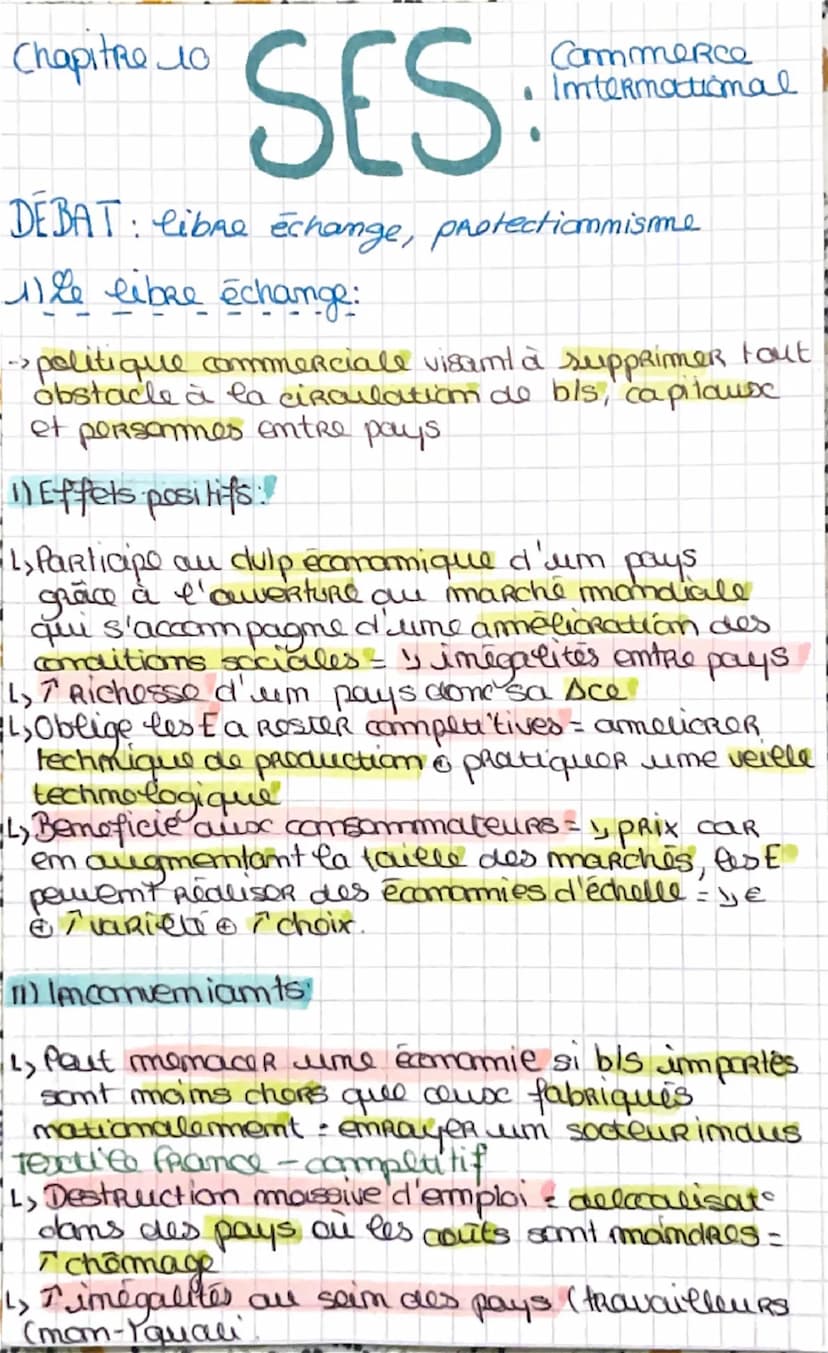 Chapitre 10
SES :
Commerce
International
DÉBAT : libre échange, protectionnisme
1) Le libre échange:
-> politique commerciale visant à supprimer tout
obstacle à la circulation de b/s, capitaux
et personnes entre pays
I) Effets positifs:
↳ Participe au dvlp économique d'un pays
grâce à l'ouverture au marché mondiale
qui s'accompagne d'une amélioration des
conditions sociales = ↘ inégalités entre pays
↳ ↑ Richesse d'un pays donc sa Δce
↳ Oblige les E a rester compétitives = améliorer
technique de production ⊕ pratiquer une veille
technologique
↳ Beneficie aux consommateurs = ↘ prix car
en augmentant la taille des marchés, les E
peuvent réaliser des économies d'échelle = ↘ €
⊕ ↑ variété ⊕ ↑ choix.
II) Inconveniants:
↳ Peut menacer une économie si b/s importés
sont moins chers que ceux fabriqués
nationalement = enrayer un secteur indus
Textile France - compétitif
↳ Destruction massive d'emploi = délocalisat°
dans des pays où les coûts sont moindres =
↑ chômage
↳ ↑ inégalités au sein des pays (travailleurs
(non-/quali